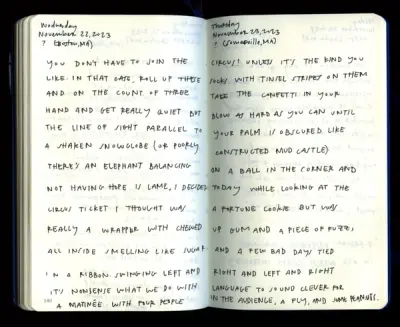 Wednesday
November 22, 2023
? (Boston, MA)
YOU DON'T HAVE TO JOIN THE
LIKE. IN THAT CASE, ROLL UP THESE
AND ON THE COUNT OF THREE
HAND AND GET REALLY QUIET BUT
THE LINE OF SIGHT PARALLEL TO
A SHAKEN SNOWGLOBE (OR POORLY
THERE'S AN ELEPHANT BALANCING
NOT HAVING HOPE IS LAME, I DECIDED
CIRCUS TICKET I THOUGHT WAS
REALLY A WRAPPER WITH CHEWED
ALL INSIDE SMELLING LIKE SUGAR.
IN A RIBBON SWINGING LEFT AND
IT'S NONSENSE WHAT WE DO WITH
A MATINÉE WITH FOUR PEOPLE
Thursday
November 23, 2023
? (Somerville, MA)
CIRCUS! UNLESS IT'S THE KIND YOU
SOCKS WITH TINSEL STRIPES ON THEM
TAKE THE CONFETTI IN YOUR
BLOW AS HARD AS YOU CAN UNTIL
YOUR PALM IS OBSCURED LIKE
CONSTRUCTED MUD CASTLE)
ON A BALL IN THE CORNER AND
TODAY WHILE LOOKING AT THE
A FORTUNE COOKIE BUT WAS
UP GUM AND A PIECE OF FUZZ,
AND A FEW BAD DAYS TIED
RIGHT AND LEFT AND RIGHT
LANGUAGE TO SOUND CLEVER FOR
IN THE AUDIENCE, A FLY, AND SOME PEANUTS.